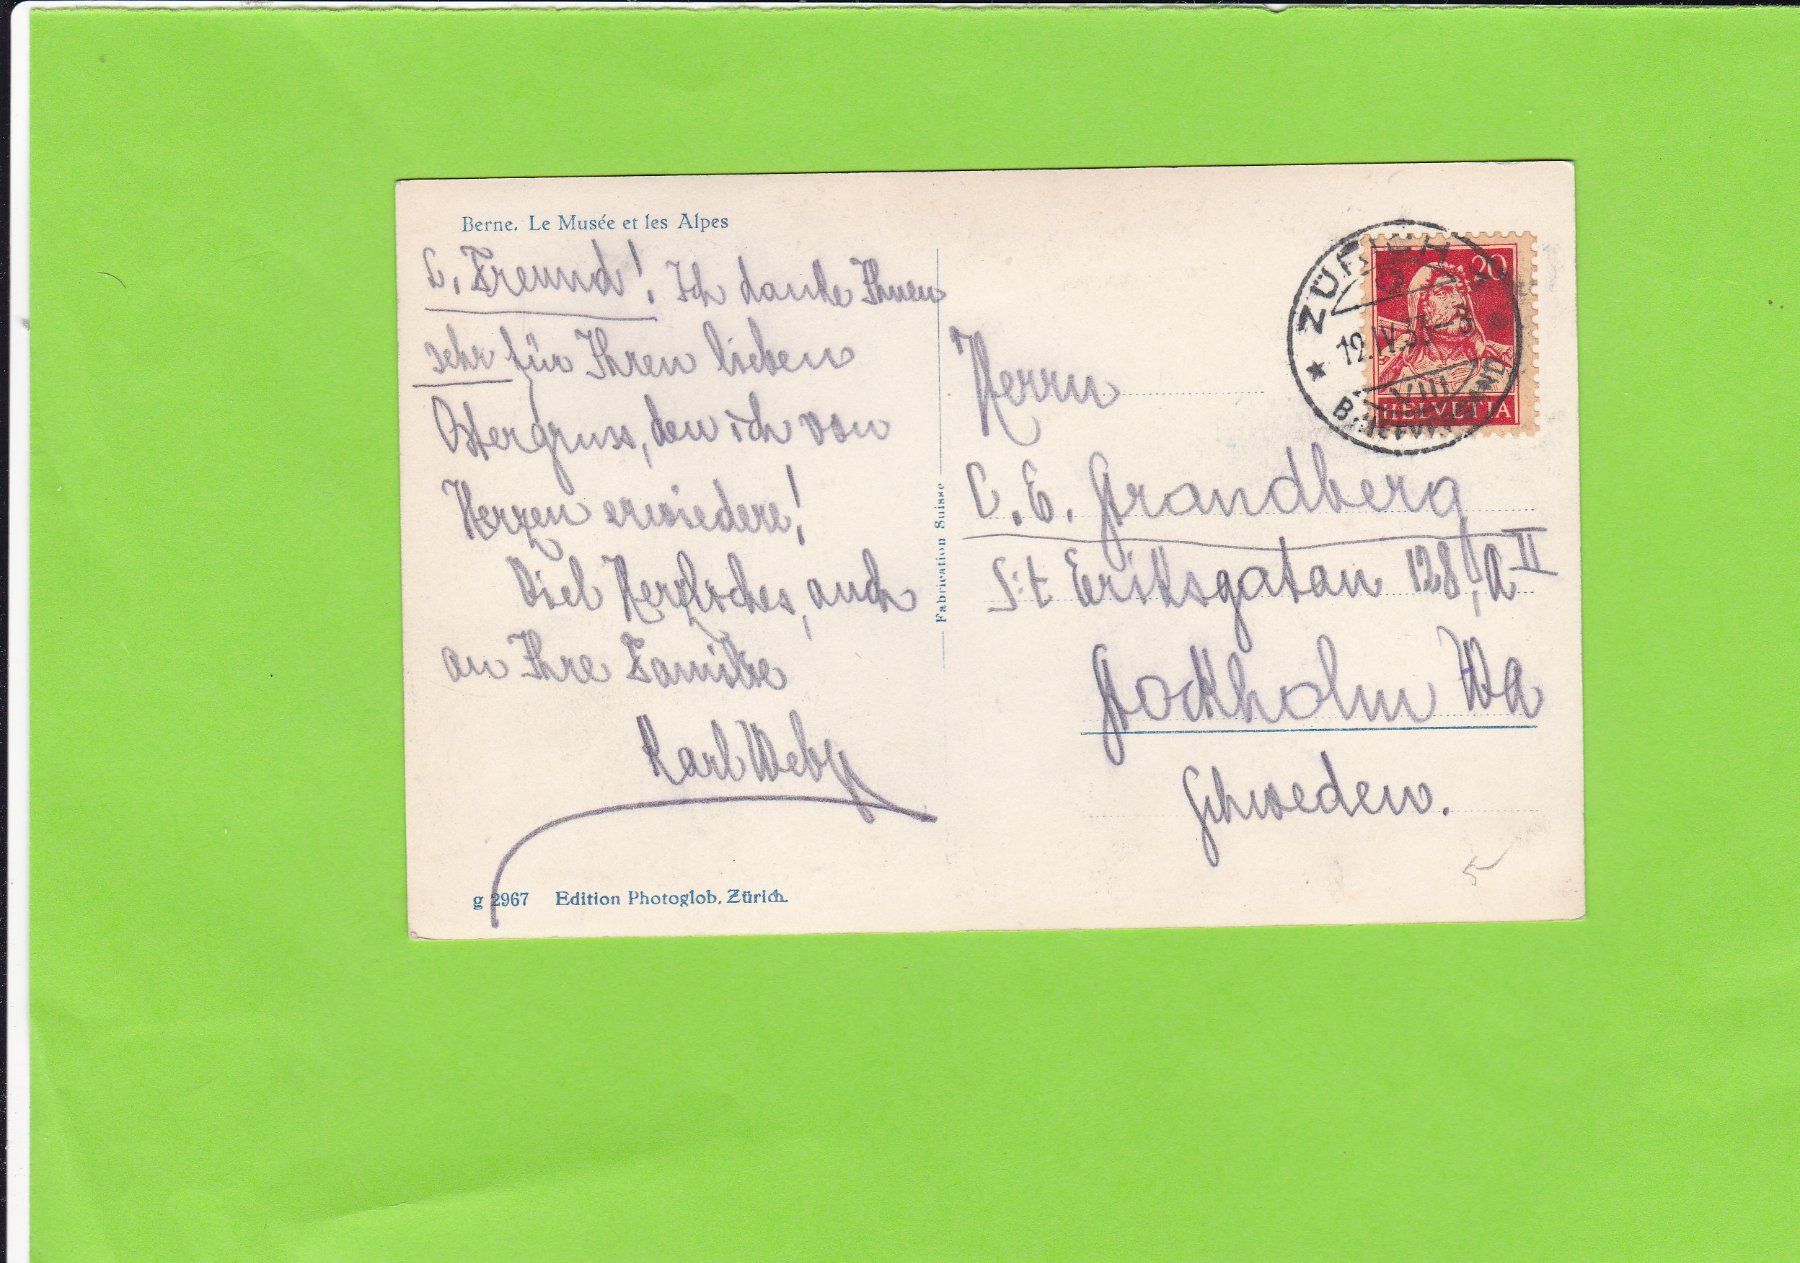 Berne. Le Musée et les Alpes
L. Freund! Ich danke Ihnen
sehr für Ihren lieben
Ostergruss, den ich von
Herzen erwiedere!
Viel Herzliches, auch
an Ihre Familie
Karl Weby
g 2967 Edition Photoglob, Zürich.
Fabrication Suisse
ZÜRICH
12.IV.
VIII
BRIEFVERSAND
20
HELVETIA
Herrn
C. E. Strandberg
S:t Eriksgatan 128, A II
Stockholm Va
Schweden.
5